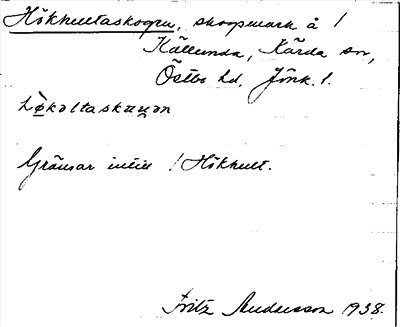 Hökhultaskogen, skogsmark å !
Källunda, Kärda sn,
Östbo hd, Jönk. l.
Gränsar intill ! Hökhult.
Fritz Andersson 1938.